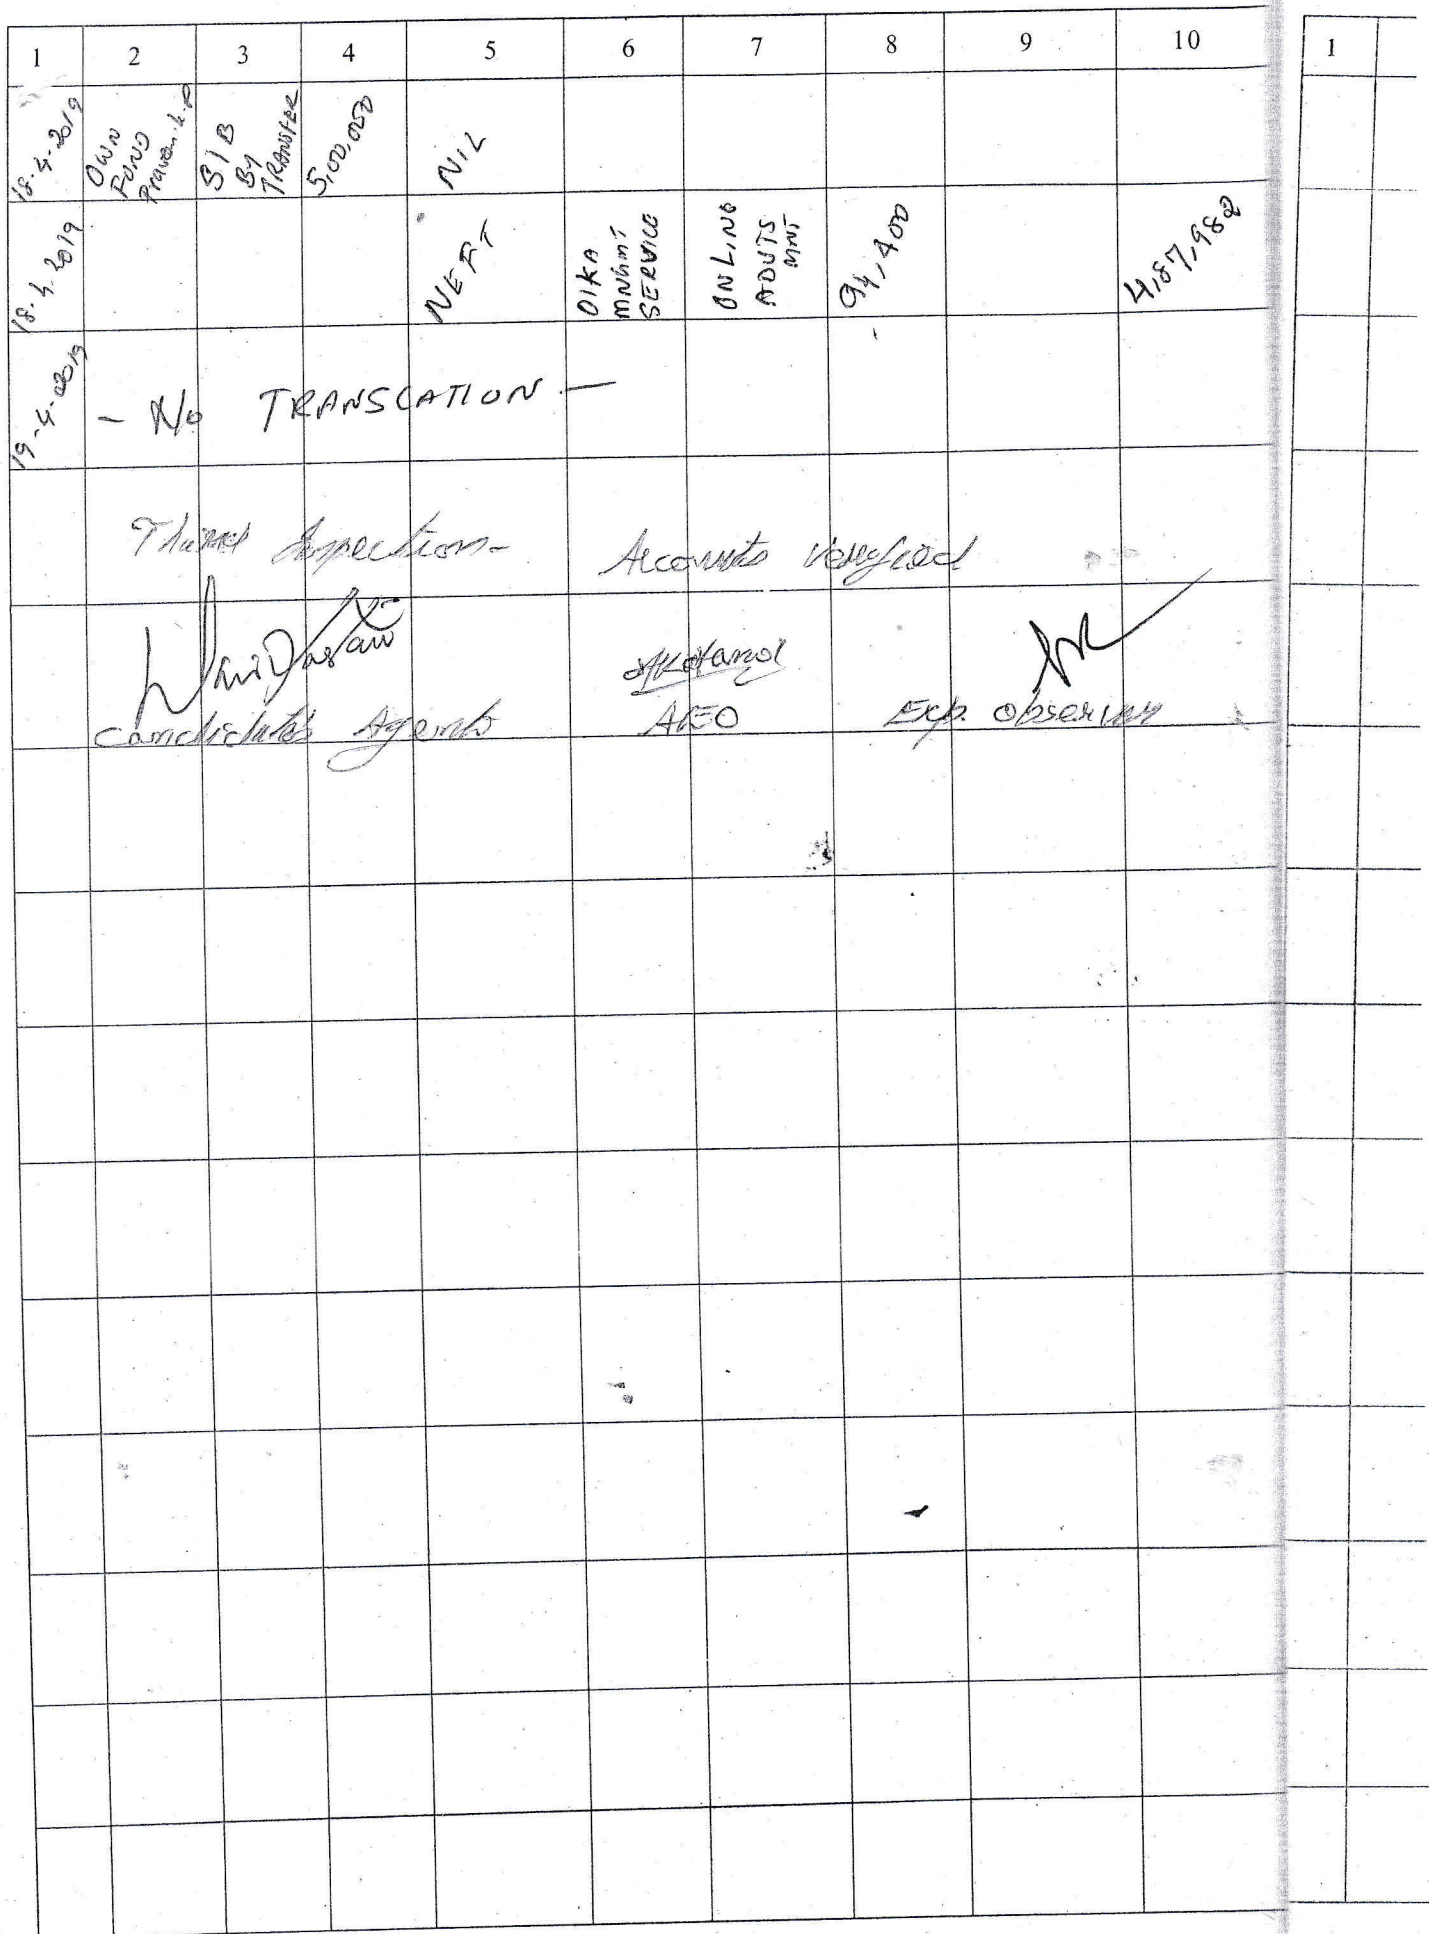 1 2 3 4 5 6 7 8 9 10 1
18.4.2019 OWN FUND Praveen.k.p SIB BY TRANSFER 5,00,000 NIL
18.4.2019 NEFT DIKA MNGMT SERVICE ONLINE ADVTS MNT 94,400 4,87,982
19-4-2019 - No TRANSCATION -
Third Inspection - Accounts Verified
Candidate's Agents AEO Exp. observer